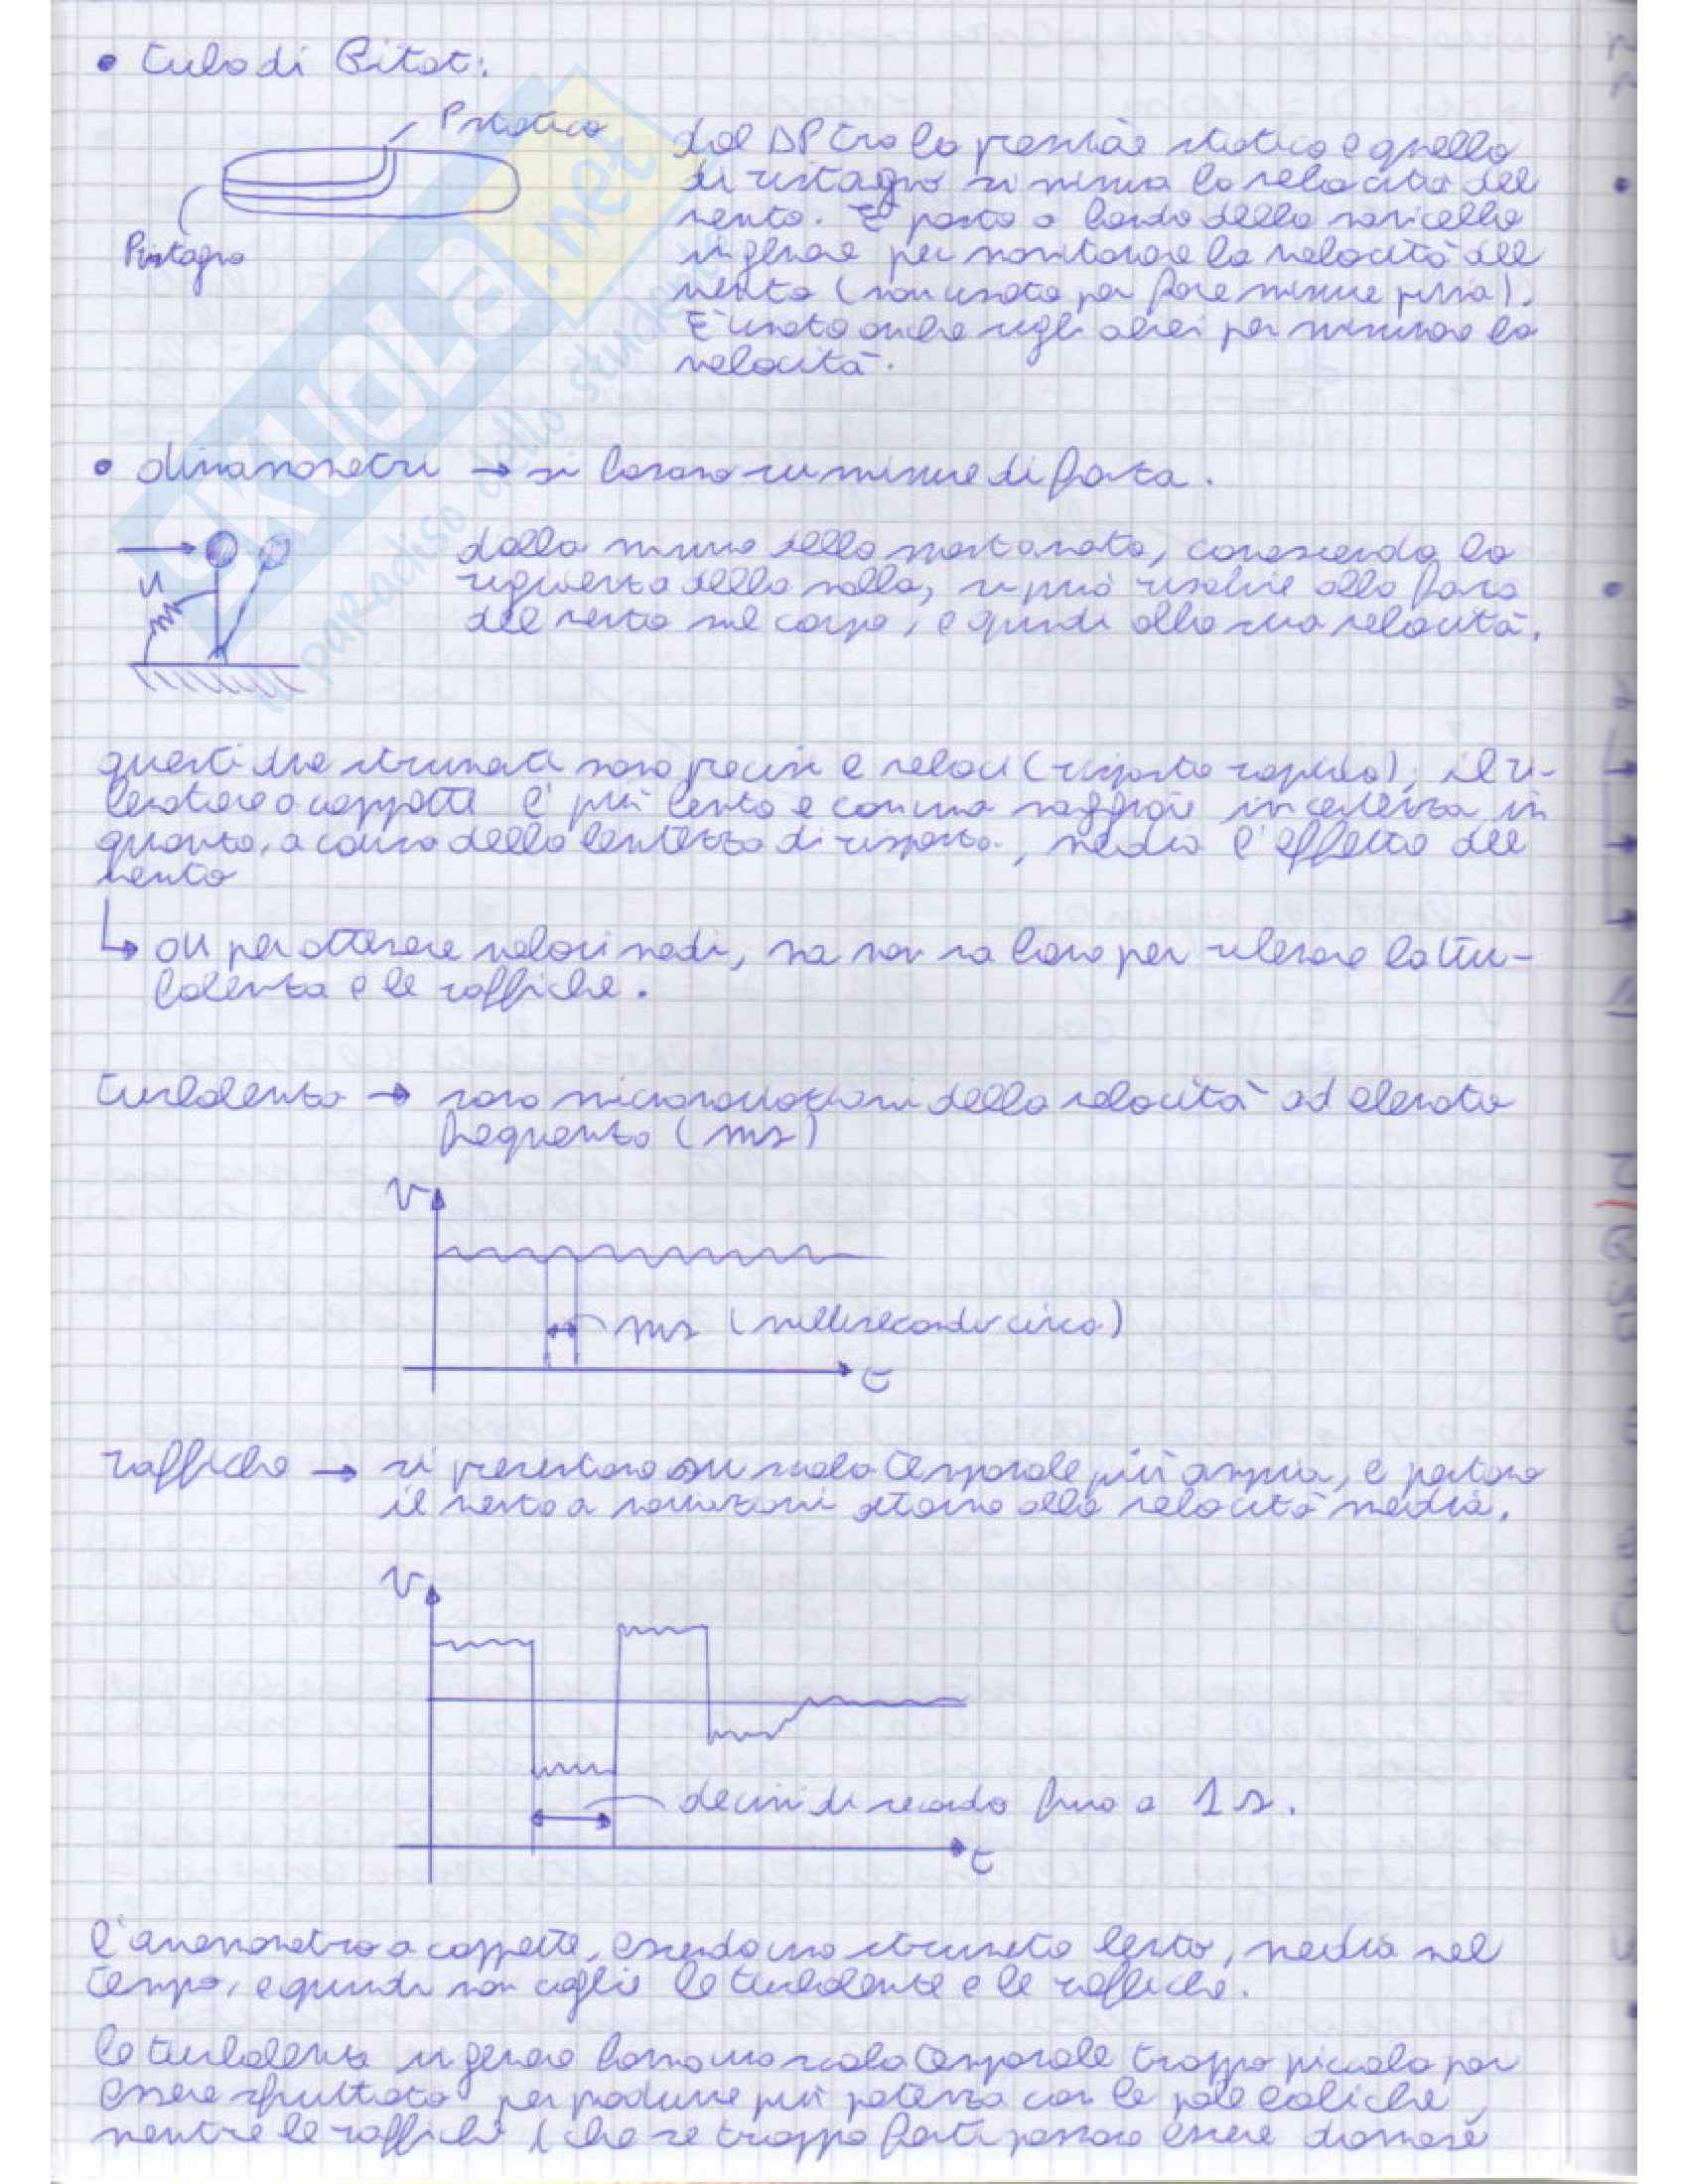 • tubo di Pitot:
Pstatica
Pristagno
dal ΔP tra la pressione statica e quella
di ristagno si misura la velocità del
vento. È posto a bordo della navicella
in genere per monitorare la velocità del
vento (non usato per fare misure pure).
È usato anche sugli aerei per misurare la
velocità.
• dinamometri → si basano su misure di forza.
u
dalla misura dello spostamento, conoscendo la
rigidezza della molla, si può risalire alla forza
del vento sul corpo, e quindi alla sua velocità.
questi due strumenti sono precisi e veloci (risposta rapida); il ri-
levatore a coppette è più lento e con una maggiore incertezza in
quanto, a causa della lentezza di risposta, media l'effetto del
vento
↳ ok per ottenere valori medi, ma non va bene per rilevare la tur-
bolenza e le raffiche.
turbolenza → sono microvariazioni della velocità ad elevata
frequenza (ms)
v
ms (millisecondi circa)
t
raffiche → si presentano su scala temporale più ampia, e portano
il vento a variazioni attorno alla velocità media.
v
decimi di secondo fino a 1 s.
t
l'anemometro a coppette, essendo uno strumento lento, media nel
tempo, e quindi non coglie le turbolenze e le raffiche.
le turbolenze in genere hanno una scala temporale troppo piccola per
essere sfruttata per produrre più potenza con le pale eoliche,
mentre le raffiche (che se troppo forti possono essere dannose
SKUOLA.net
paradiso dello studente